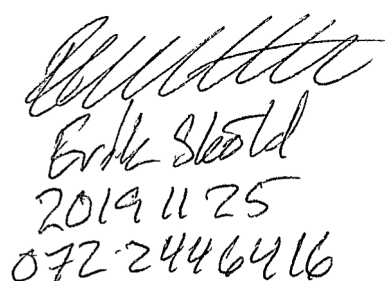 Erik Sköld
2019 11 25
072-2446416